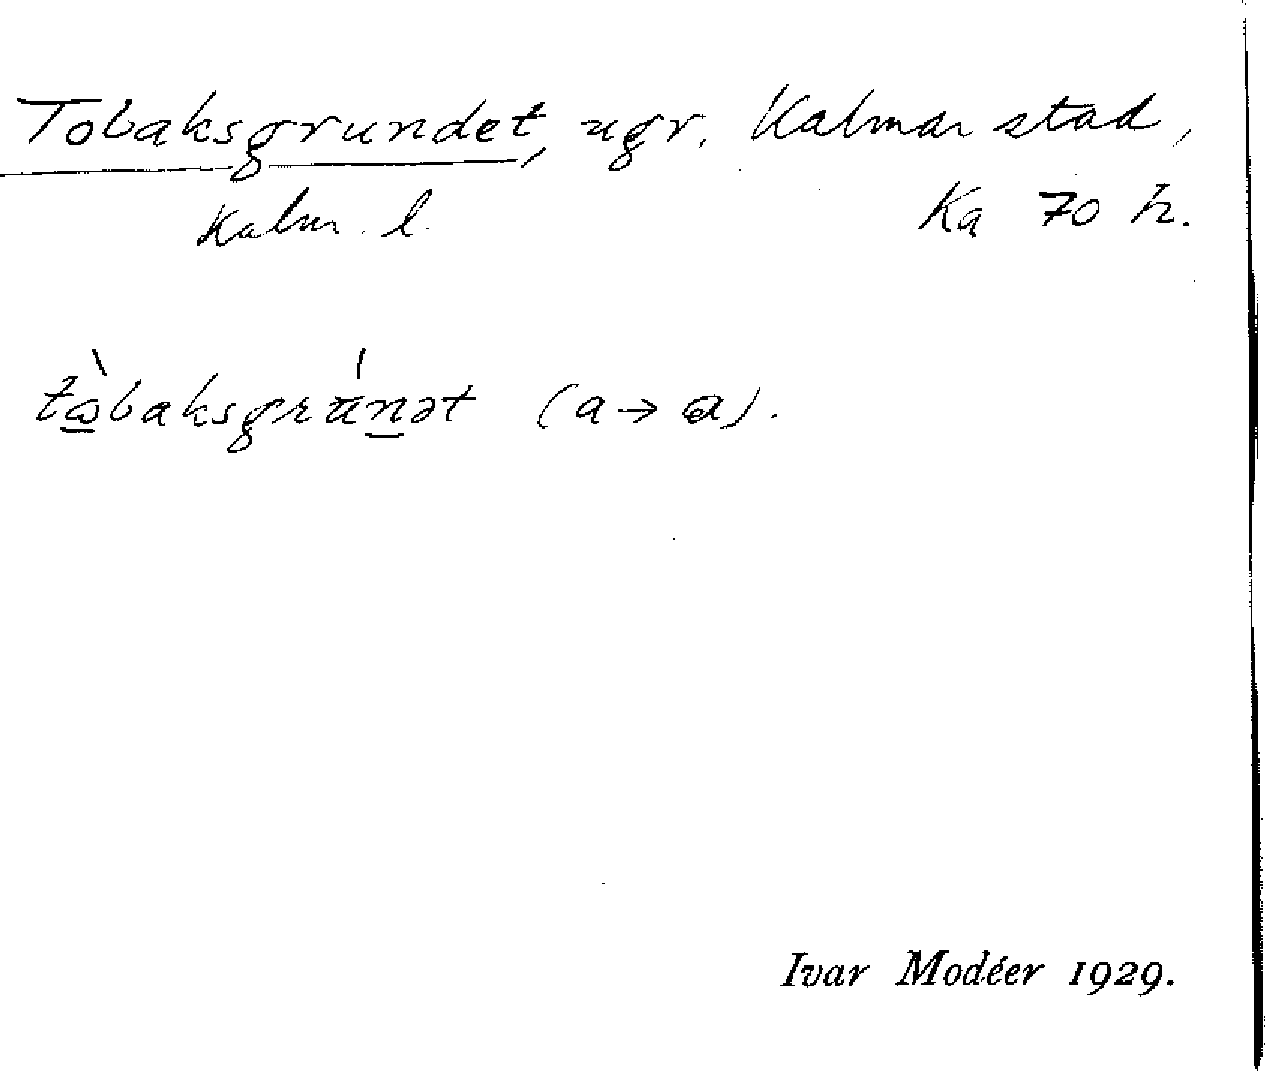 Tobaksgrundet, ugr. Kalmar stad,
Kalm. l. Ka 70 h.
tòbaksgránət (a → a).
Ivar Modéer 1929.